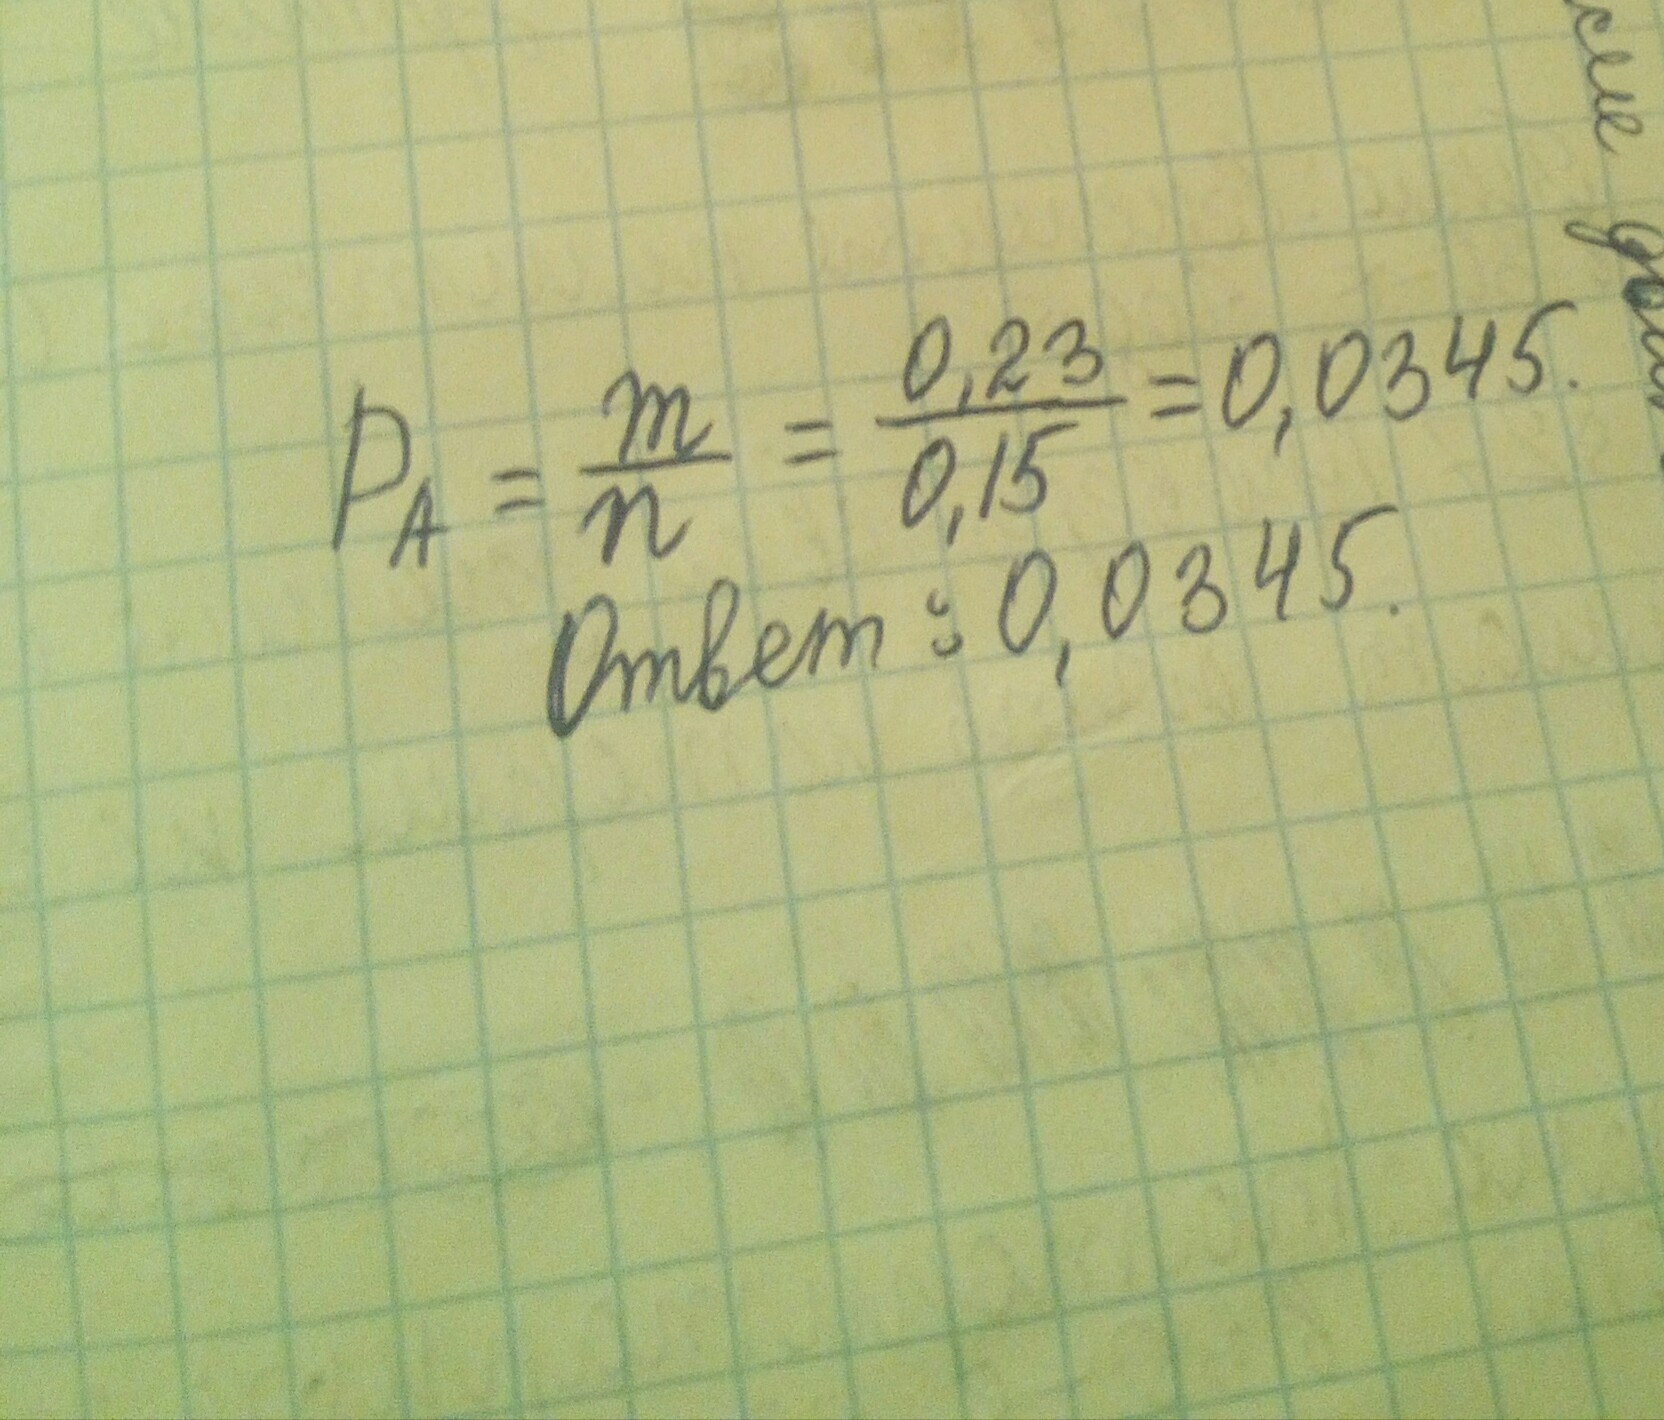 P_A = m/n = 0,23/0,15 = 0,0345.
Ответ: 0,0345.